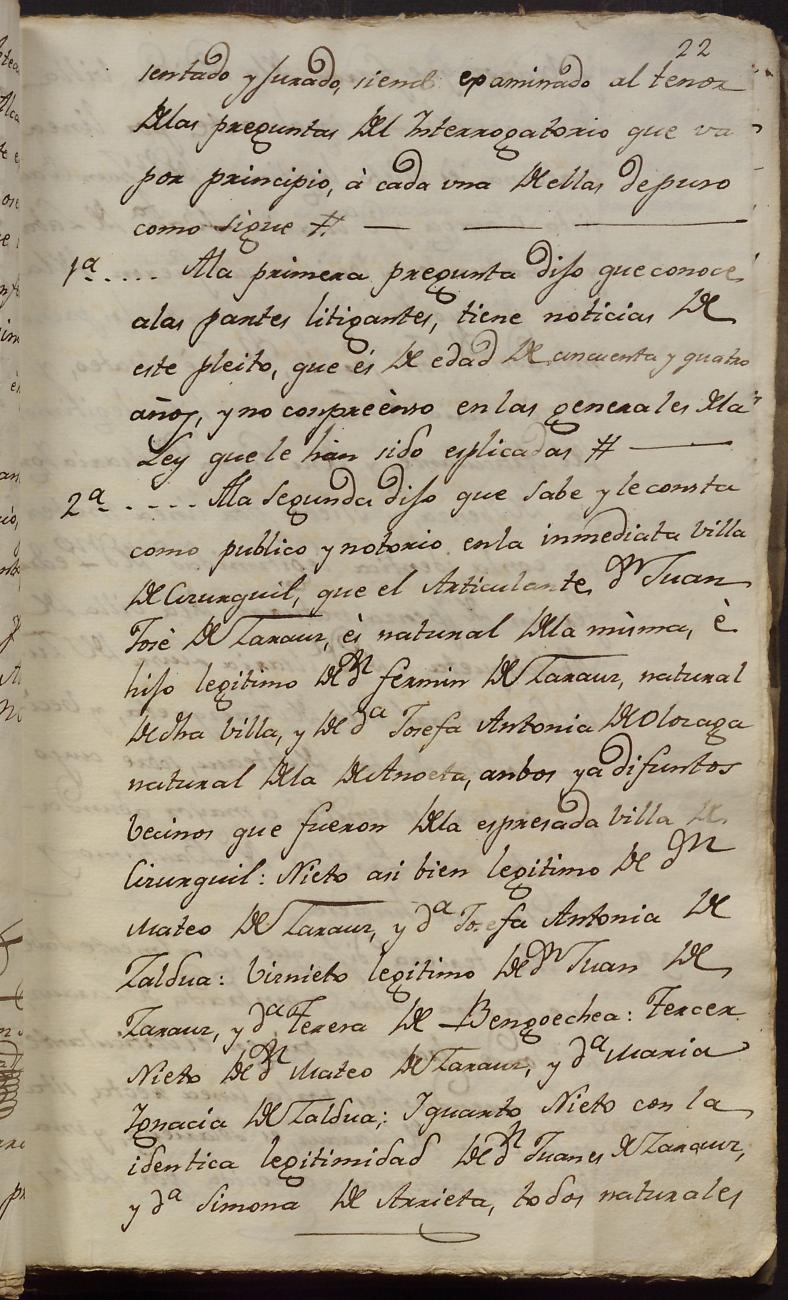 22
sentado y jurado, siend examinado al tenor
delas preguntas del Interrogatorio que va
por principio, à cada una de ellas depuso
como sigue #
1ª.... Ala primera pregunta dijo que conoce
alas partes litigantes, tiene noticias de
este pleito, que és de edad de cincuenta y quatro
años, y no conpreènso en las generales dela
Ley que le han sido esplicadas #
2ª..... Ala Segunda dijo que sabe y le consta
como publico y notorio en la inmediata Villa
de Cirurguil, que el Articulante Dn Juan
José de Zarauz, és natural dela misma, è
hijo legitimo de dn fermin de Zarauz, natural
de dha villa, y de dª Josefa Antonia de Olozaga
natural dela de Anoeta, anbos ya difuntos
Vecinos que fueron dela espresada Villa de
Cirurguil: Nieto asi bien legitimo de dn
Mateo de Zarauz, y dª Josefa Antonia de
Zaldua: Visnieto legitimo de dn Juan de
Zarauz, y dª Teresa de Bengoechea: Tercer
Nieto de dn Mateo de Zarauz, y dª Maria
Ignacia de Zaldua; I quarto Nieto con la
identica legitimidad de dn Juanes de Zarauz,
y dª Simona de Arrieta, todos naturales